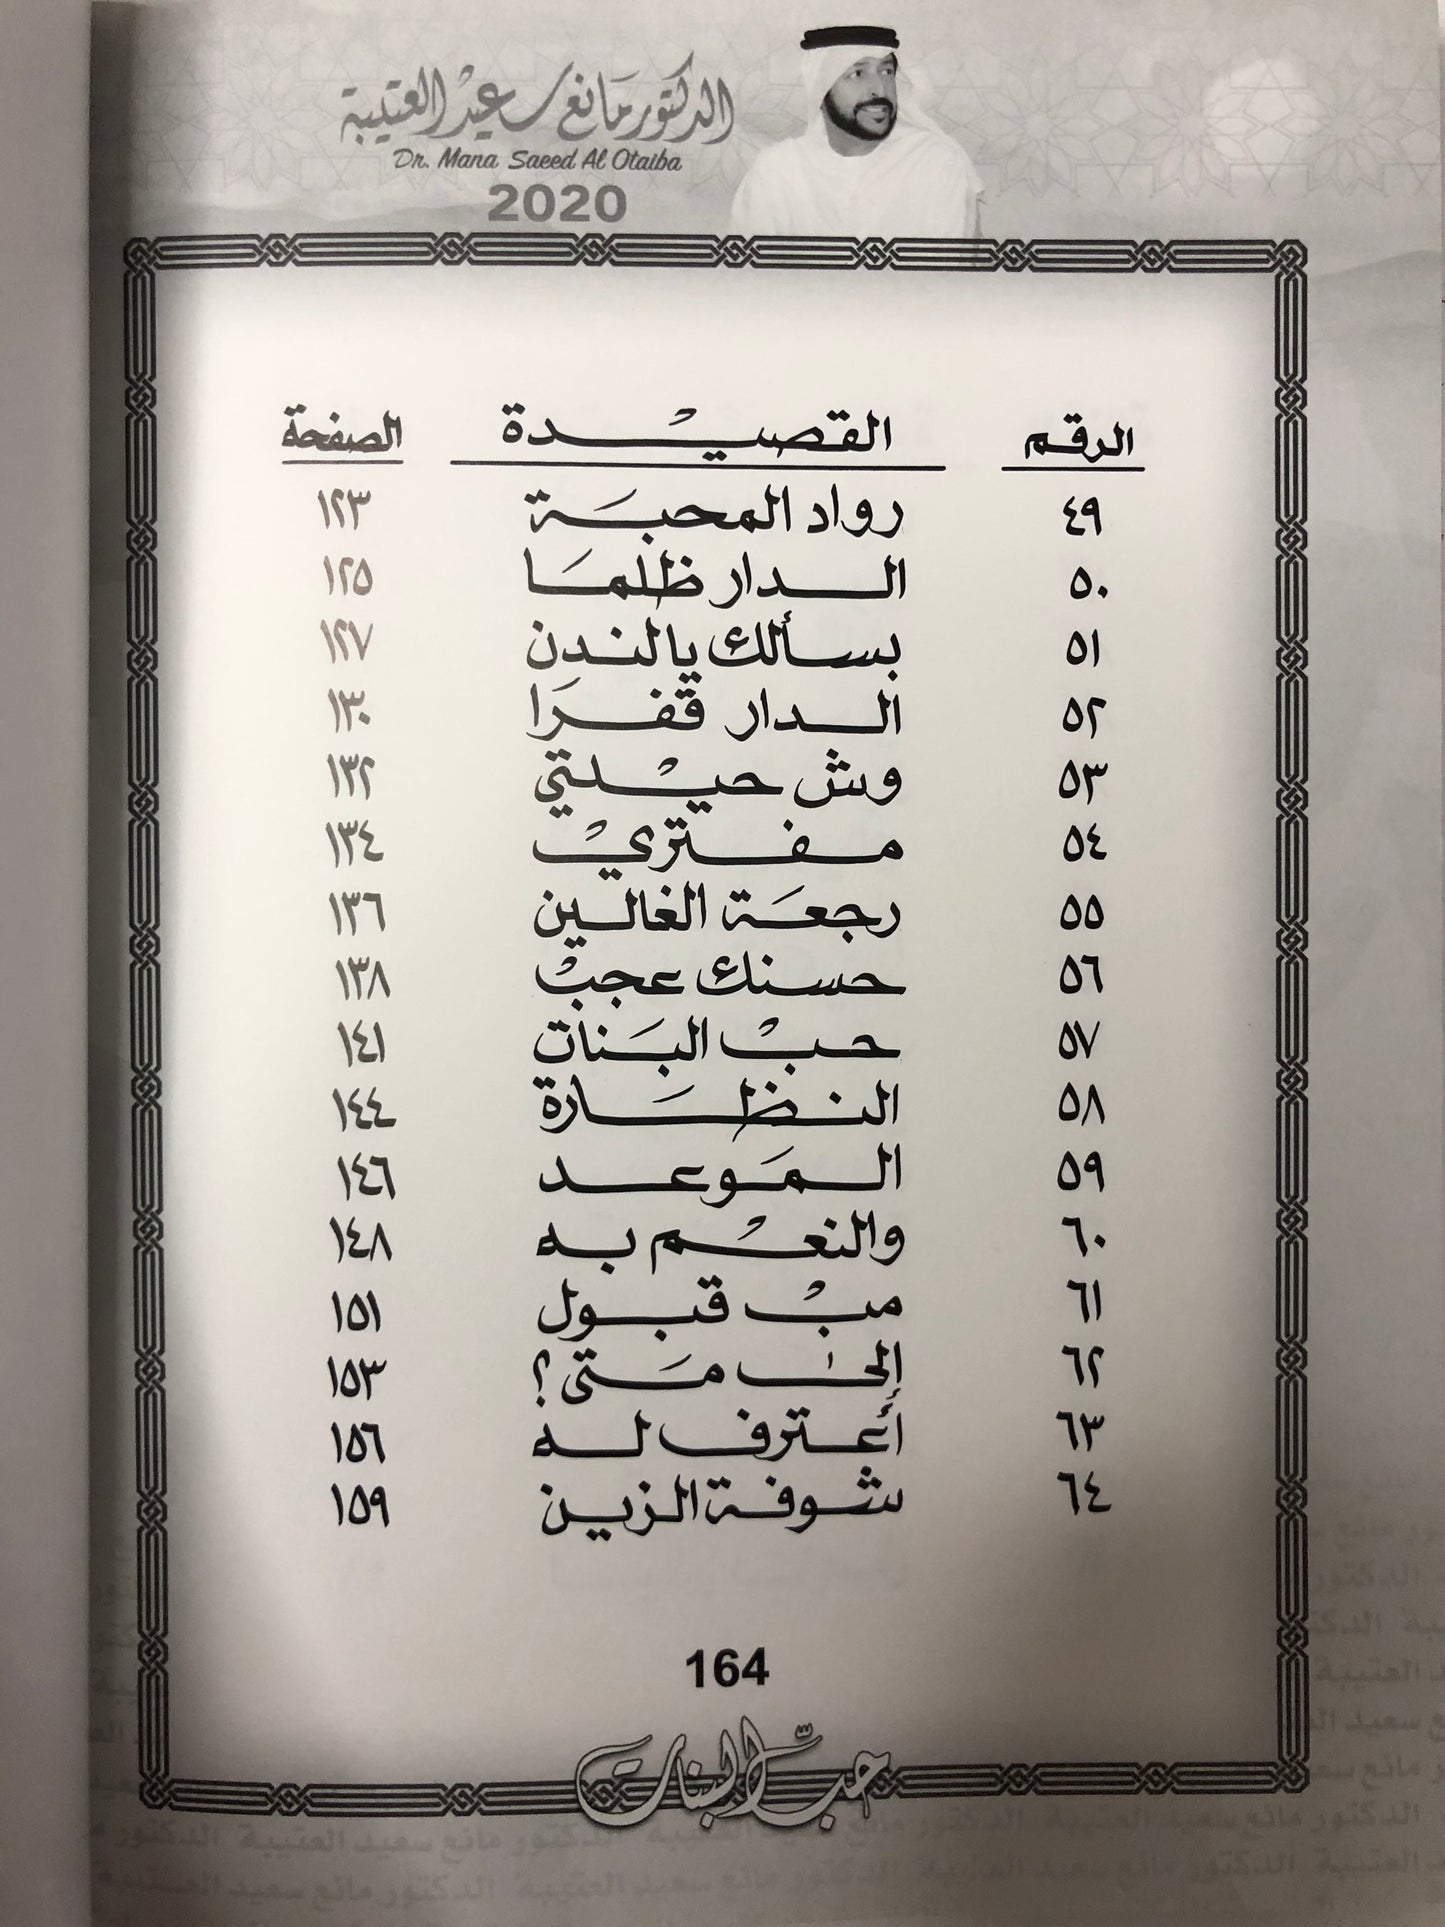 الدكتور مانع سعيد العتيبة
Dr. Mana Saeed Al Otaiba
2020
الرقم القصيدة الصفحة
٤٩ رواد المحبة ١٢٣
٥٠ الدار ظلما ١٢٥
٥١ بسألك يالندن ١٢٧
٥٢ الدار قفرا ١٣٠
٥٣ وش حيلتي ١٣٢
٥٤ مفتري ١٣٤
٥٥ رجعة الغالين ١٣٦
٥٦ حسنك عجب ١٣٨
٥٧ حب البنات ١٤١
٥٨ النظارة ١٤٤
٥٩ الموعد ١٤٦
٦٠ والنعم به ١٤٨
٦١ مب قبول ١٥١
٦٢ إلى متى؟ ١٥٣
٦٣ أعترف له ١٥٦
٦٤ شوفة الزين ١٥٩
164
حب البنات